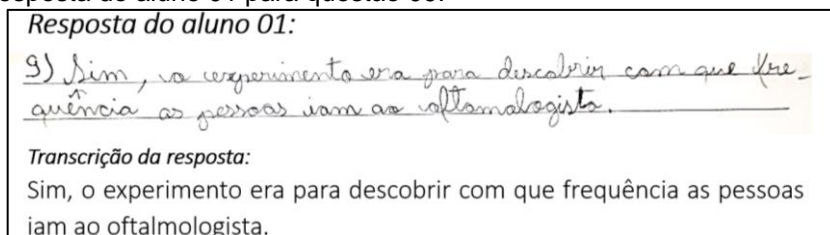 Resposta do aluno 01:
9) Sim, o experimento era para descobrir com que fre-
quência as pessoas iam ao oftamalogista.
Transcrição da resposta:
Sim, o experimento era para descobrir com que frequência as pessoas
iam ao oftalmologista.